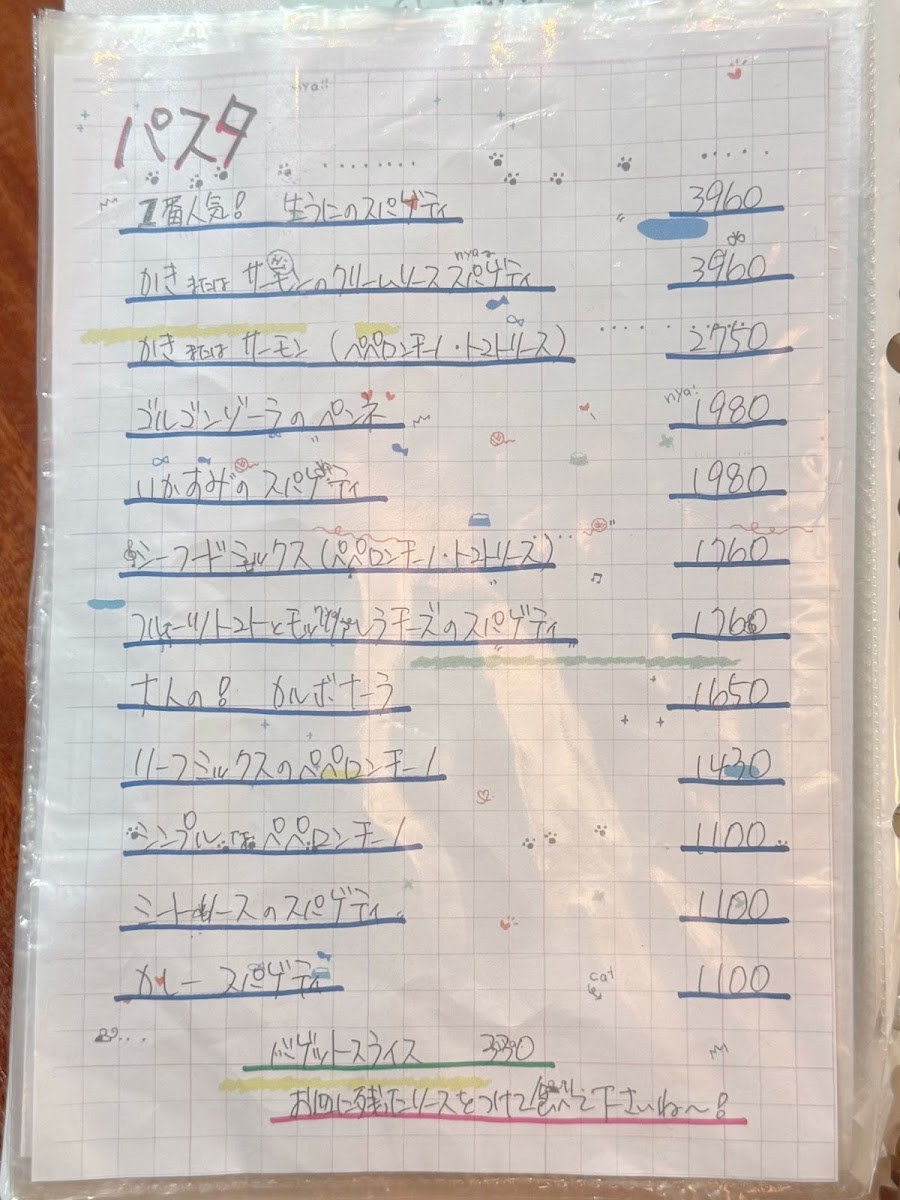 nya!!
パスタ
1番人気! 生うにのスパゲティ 3960
nyaa
かき または サーモンのクリームソース スパゲティ 3960
かき または サーモン (ペペロンチーノ・トマトソース) 2750
nya!
ゴルゴンゾーラのペンネ 1980
いかすみのスパゲティ 1980
シーフードミックス (ペペロンチーノ・トマトソース) 1760
フルーツトマトとモッツァレラチーズのスパゲティ 1760
大人の! カルボナーラ 1650
ハーフミックスのペペロンチーノ 1430
シンプル ペペロンチーノ 1100
ミートソースのスパゲティ 1100
カレー スパゲティ 1100
cat
バゲットスライス 330
お皿に残ったソースをつけて食べて下さいね〜!